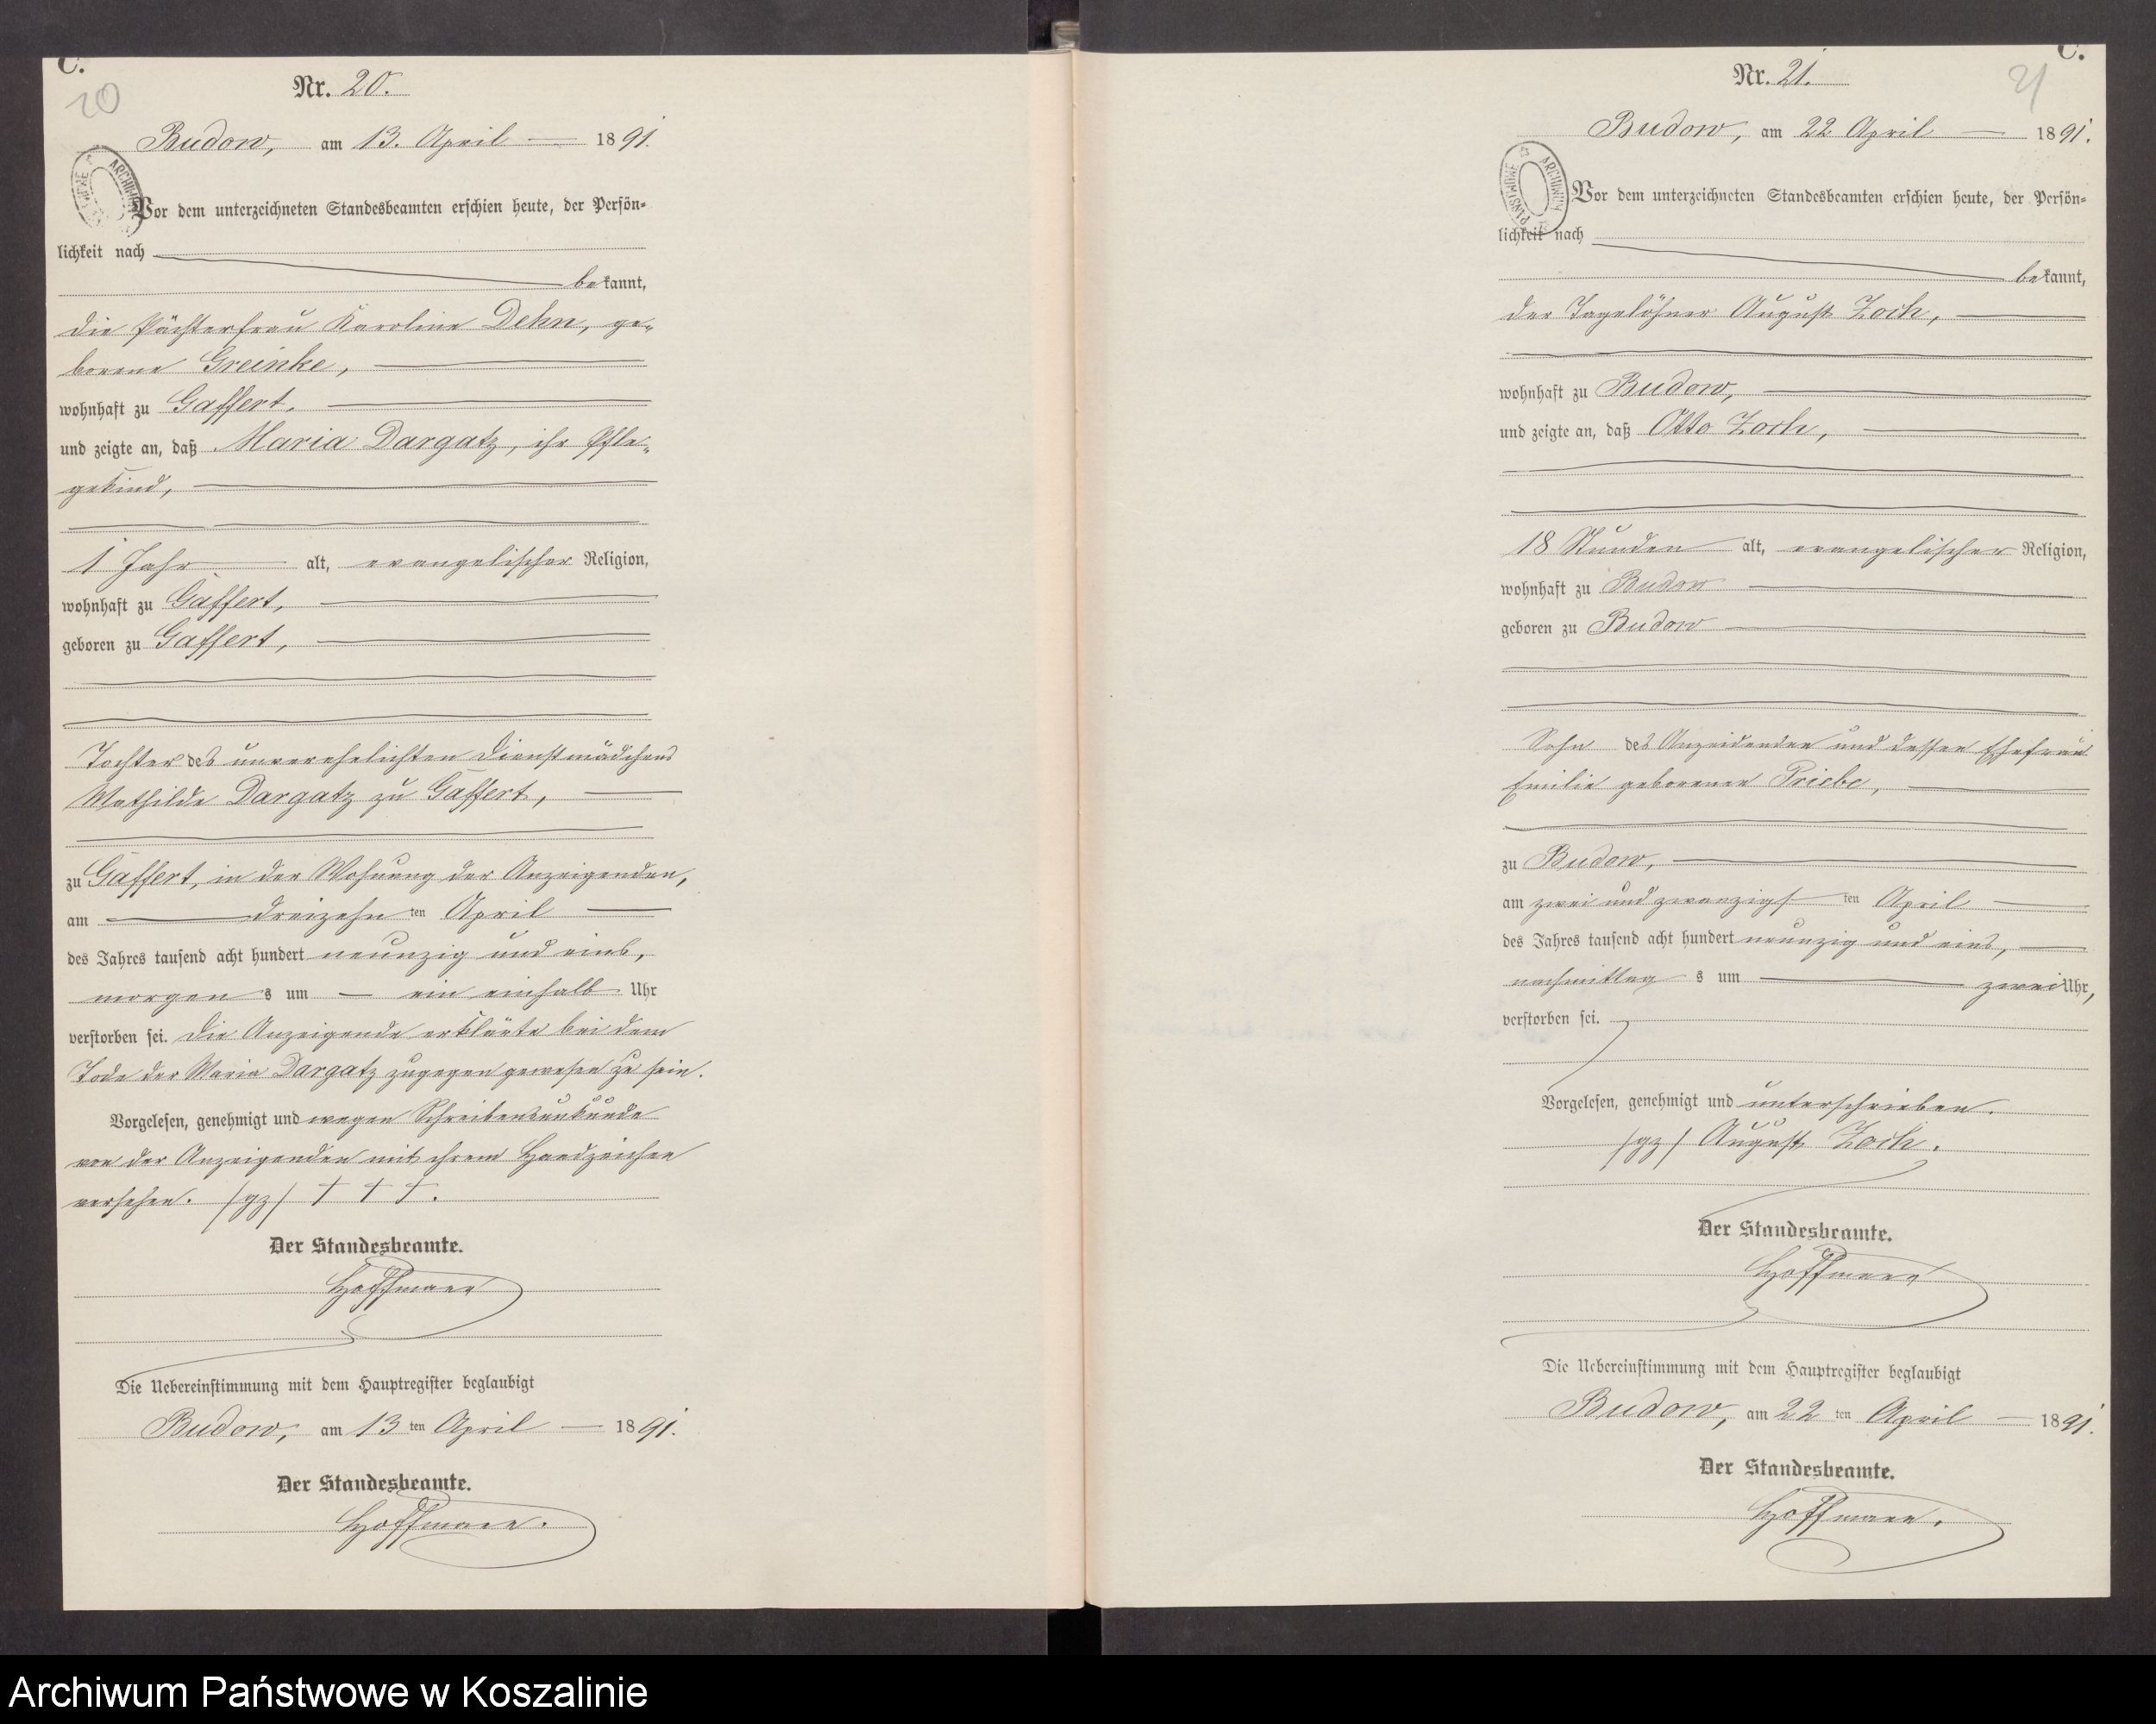 C.
20
Nr. 20.
Budow, am 13. April 1891.
ARCHIWUM
Vor dem unterzeichneten Standesbeamten erschien heute, der Persön-
lichkeit nach
bekannt,
die Pächterfrau Karoline Dehn, ge-
borene Greinke,
wohnhaft zu Gaffert,
und zeigte an, daß Maria Dargatz, ihr Pfle-
gekind,
1 Jahr alt, evangelischer Religion,
wohnhaft zu Gaffert,
geboren zu Gaffert,
Tochter des unverehelichten Dienstmädchens
Mathilde Dargatz zu Gaffert,
zu Gaffert, in der Wohnung der Anzeigenden,
am dreizehn ten April
des Jahres tausend acht hundert neunzig und eins,
morgens um ein einhalb Uhr
verstorben sei. Die Anzeigende erklärte bei dem
Tode der Maria Dargatz zugegen gewesen zu sein.
Vorgelesen, genehmigt und wegen Schreibensunkunde
von der Anzeigenden mit ihrem Handzeichen
versehen. /gz/ † † †.
Der Standesbeamte.
Hoffmann
Die Uebereinstimmung mit dem Hauptregister beglaubigt
Budow, am 13 ten April 1891.
Der Standesbeamte.
Hoffmann.
C.
21
Nr. 21.
Budow, am 22 April 1891.
ARCHIWUM PAŃSTWOWE
Vor dem unterzeichneten Standesbeamten erschien heute, der Persön-
lichkeit nach
bekannt,
der Tagelöhner August Zoch,
wohnhaft zu Budow,
und zeigte an, daß Otto Zoch,
18 Stunden alt, evangelischer Religion,
wohnhaft zu Budow
geboren zu Budow
Sohn des Anzeidenden und dessen Ehefrau
Emilie geborener Priebe,
zu Budow,
am zwei und zwanzigsten April
des Jahres tausend acht hundert neunzig und eins,
nachmittags um zwei Uhr,
verstorben sei.
Vorgelesen, genehmigt und unterschrieben.
/gz/ August Zoch.
Der Standesbeamte.
Hoffmann
Die Uebereinstimmung mit dem Hauptregister beglaubigt
Budow, am 22 ten April 1891.
Der Standesbeamte.
Hoffmann.
Archiwum Państwowe w Koszalinie